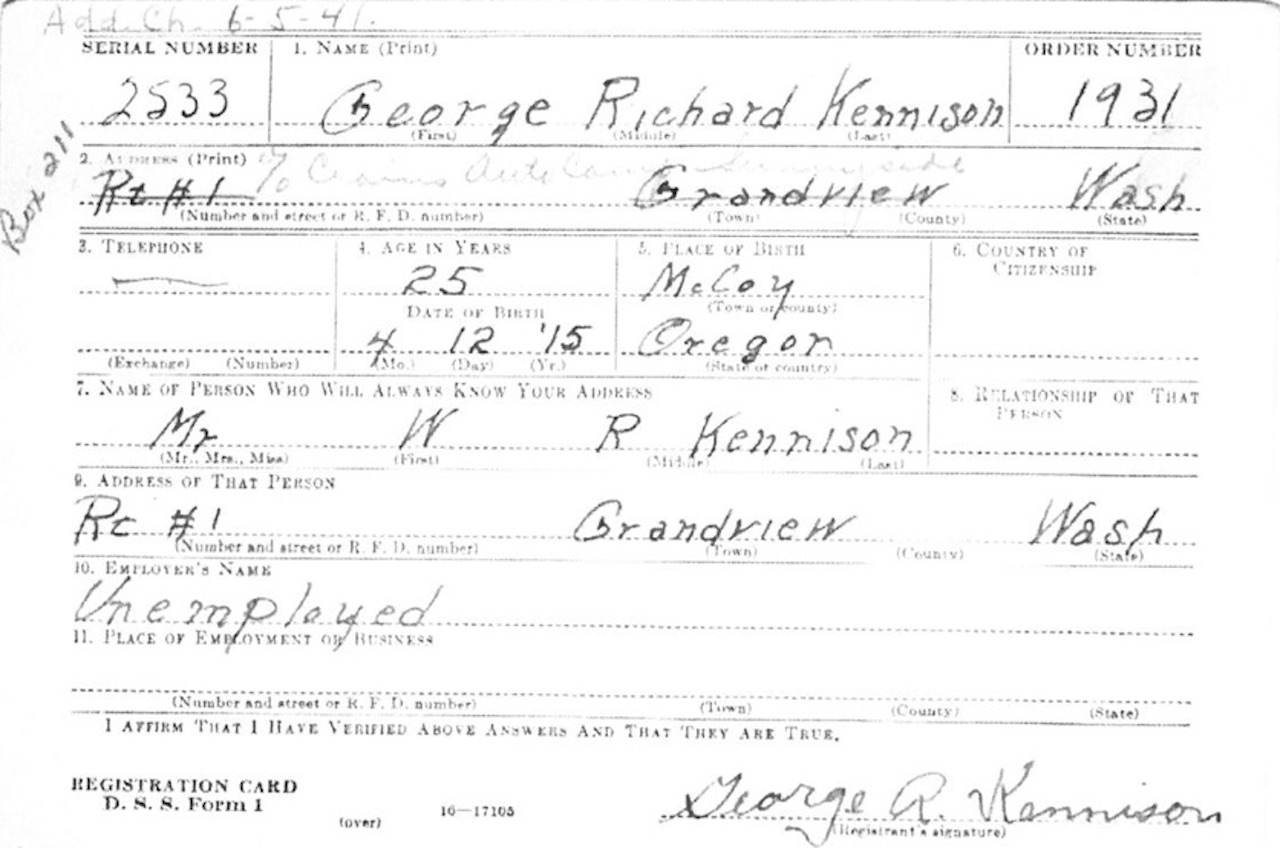 Add. Ch. 6-5-41.
SERIAL NUMBER 1. NAME (Print) ORDER NUMBER
2533 George Richard Kennison 1931
(First) (Middle) (Last)
Box 211
2. ADDRESS (Print) % Auto Camp Sunnyside
Rt #1 Grandview Wash
(Number and street or R. F. D. number) (Town) (County) (State)
3. TELEPHONE 4. AGE IN YEARS 5. PLACE OF BIRTH 6. COUNTRY OF
CITIZENSHIP
25 McCoy
DATE OF BIRTH (Town or county)
4 12 '15 Oregon
(Exchange) (Number) (Mo.) (Day) (Yr.) (State or country)
7. NAME OF PERSON WHO WILL ALWAYS KNOW YOUR ADDRESS 8. RELATIONSHIP OF THAT
PERSON
Mr W R Kennison
(Mr., Mrs., Miss) (First) (Middle) (Last)
9. ADDRESS OF THAT PERSON
Rt #1 Grandview Wash
(Number and street or R. F. D. number) (Town) (County) (State)
10. EMPLOYER'S NAME
Unemployed
11. PLACE OF EMPLOYMENT OR BUSINESS
(Number and street or R. F. D. number) (Town) (County) (State)
I AFFIRM THAT I HAVE VERIFIED ABOVE ANSWERS AND THAT THEY ARE TRUE.
REGISTRATION CARD
D. S. S. Form 1 (over) 16—17105 George R. Kennison
(Registrant's signature)